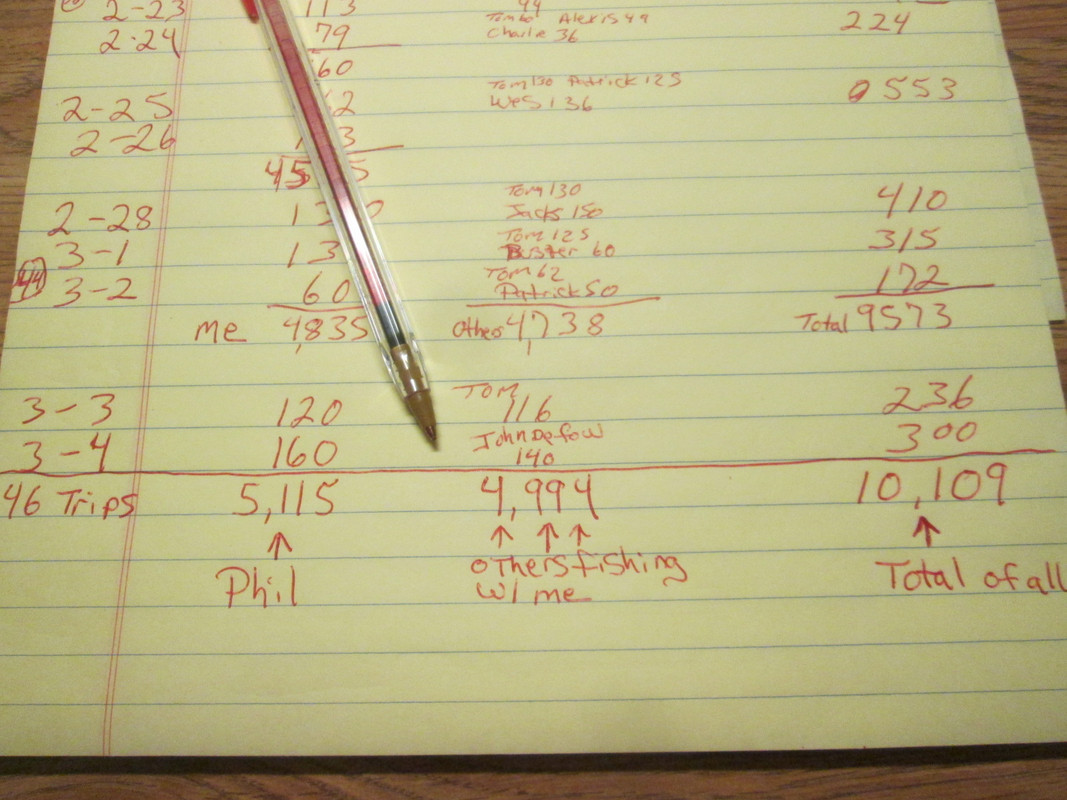 2-23 113 44
Tom 60 Alexis 49 224
2-24 79 Charlie 36
60
Tom 130 Patrick 125
2-25 2 Wes 136 553
2-26 3
45 5
Tom 130
2-28 1 Jacks 150 410
Tom 125
3-1 13 Buster 60 315
Tom 62
44 3-2 60 Patrick 50 172
me 4,835 others 4,738 Total 9573
Tom
3-3 120 116 236
John Defow
3-4 160 140 300
46 Trips 5,115 4,994 10,109
Phil others fishing Total of all
w/ me